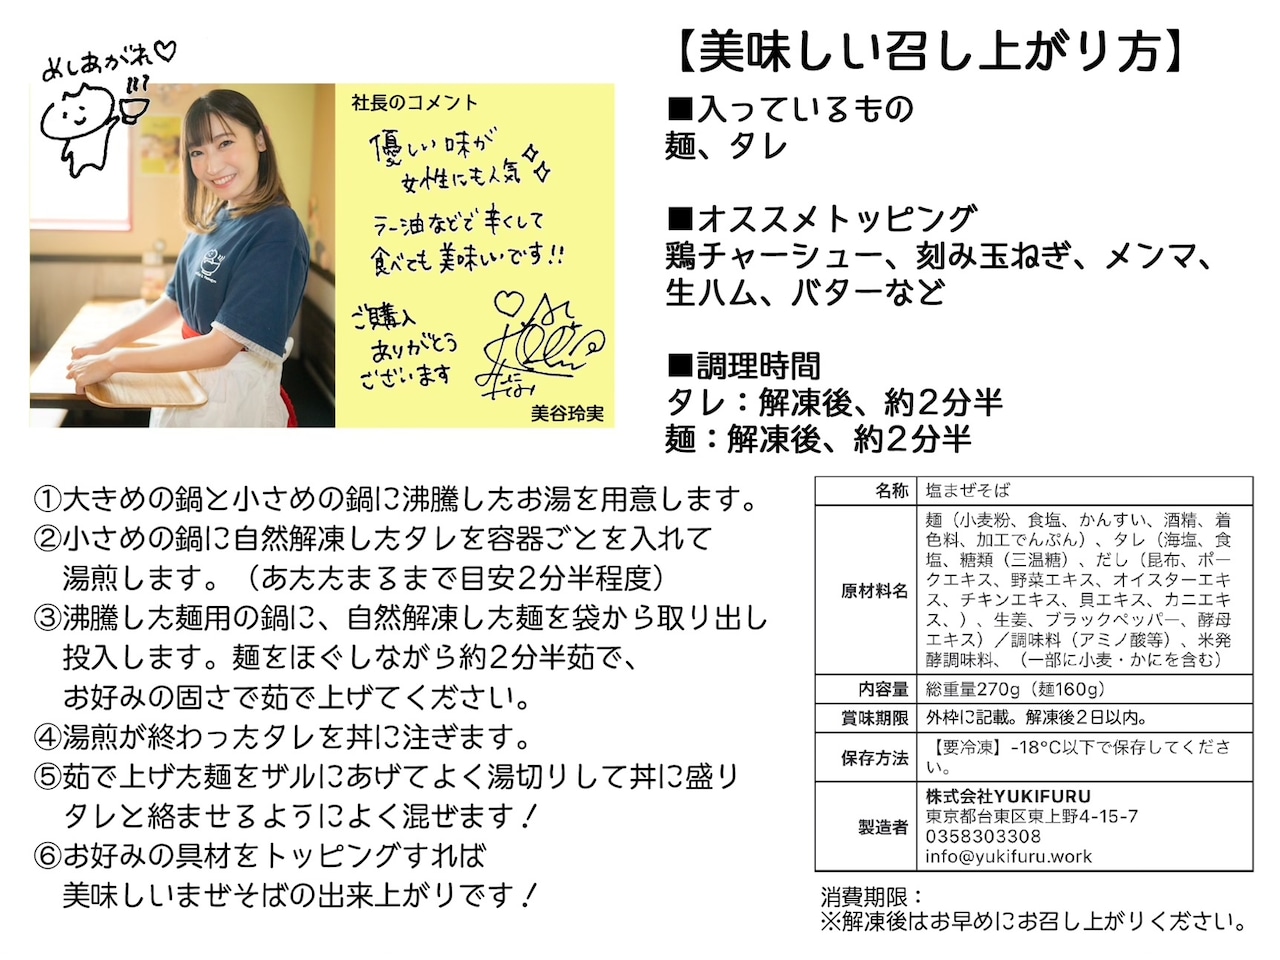 めしあがれ♡
社長のコメント
優しい味が
女性にも人気
ラー油などで辛くして
食べても美味しいです!!
ご購入
ありがとう
ございます
美谷玲実
【美味しい召し上がり方】
■入っているもの
麺、タレ
■オススメトッピング
鶏チャーシュー、刻み玉ねぎ、メンマ、
生ハム、バターなど
■調理時間
タレ：解凍後、約2分半
麺：解凍後、約2分半
①大きめの鍋と小さめの鍋に沸騰したお湯を用意します。
②小さめの鍋に自然解凍したタレを容器ごとを入れて
湯煎します。（あたたまるまで目安2分半程度）
③沸騰した麺用の鍋に、自然解凍した麺を袋から取り出し
投入します。麺をほぐしながら約2分半茹で、
お好みの固さで茹で上げてください。
④湯煎が終わったタレを丼に注ぎます。
⑤茹で上げた麺をザルにあげてよく湯切りして丼に盛り
タレと絡ませるようによく混ぜます！
⑥お好みの具材をトッピングすれば
美味しいまぜそばの出来上がりです！
名称 塩まぜそば
原材料名 麺（小麦粉、食塩、かんすい、酒精、着
色料、加工でんぷん）、タレ（海塩、食
塩、糖類（三温糖）、だし（昆布、ポー
クエキス、野菜エキス、オイスターエキ
ス、チキンエキス、貝エキス、カニエキ
ス、）、生姜、ブラックペッパー、酵母
エキス）／調味料（アミノ酸等）、米発
酵調味料、（一部に小麦・かにを含む）
内容量 総重量270g（麺160g）
賞味期限 外枠に記載。解凍後2日以内。
保存方法 【要冷凍】-18°C以下で保存してくださ
い。
製造者 株式会社YUKIFURU
東京都台東区東上野4-15-7
0358303308
info@yukifuru.work
消費期限：
※解凍後はお早めにお召し上がりください。